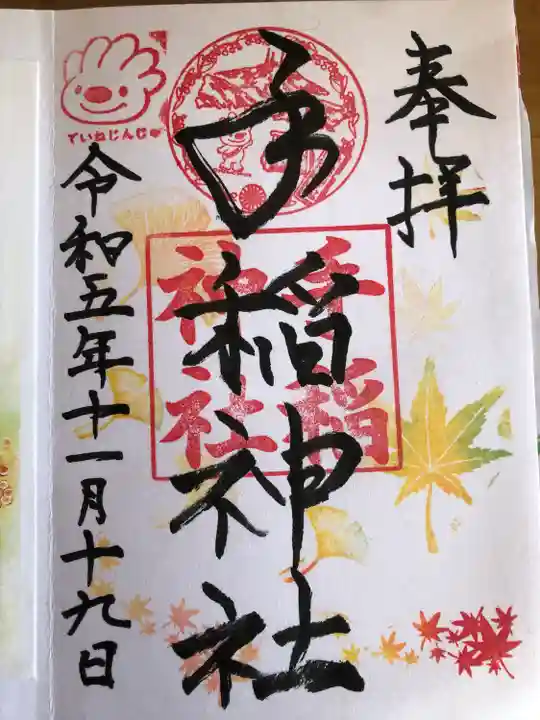 奉拝
手稲神社
手稲
神社
令和五年十一月十九日
ていねじんじゃ